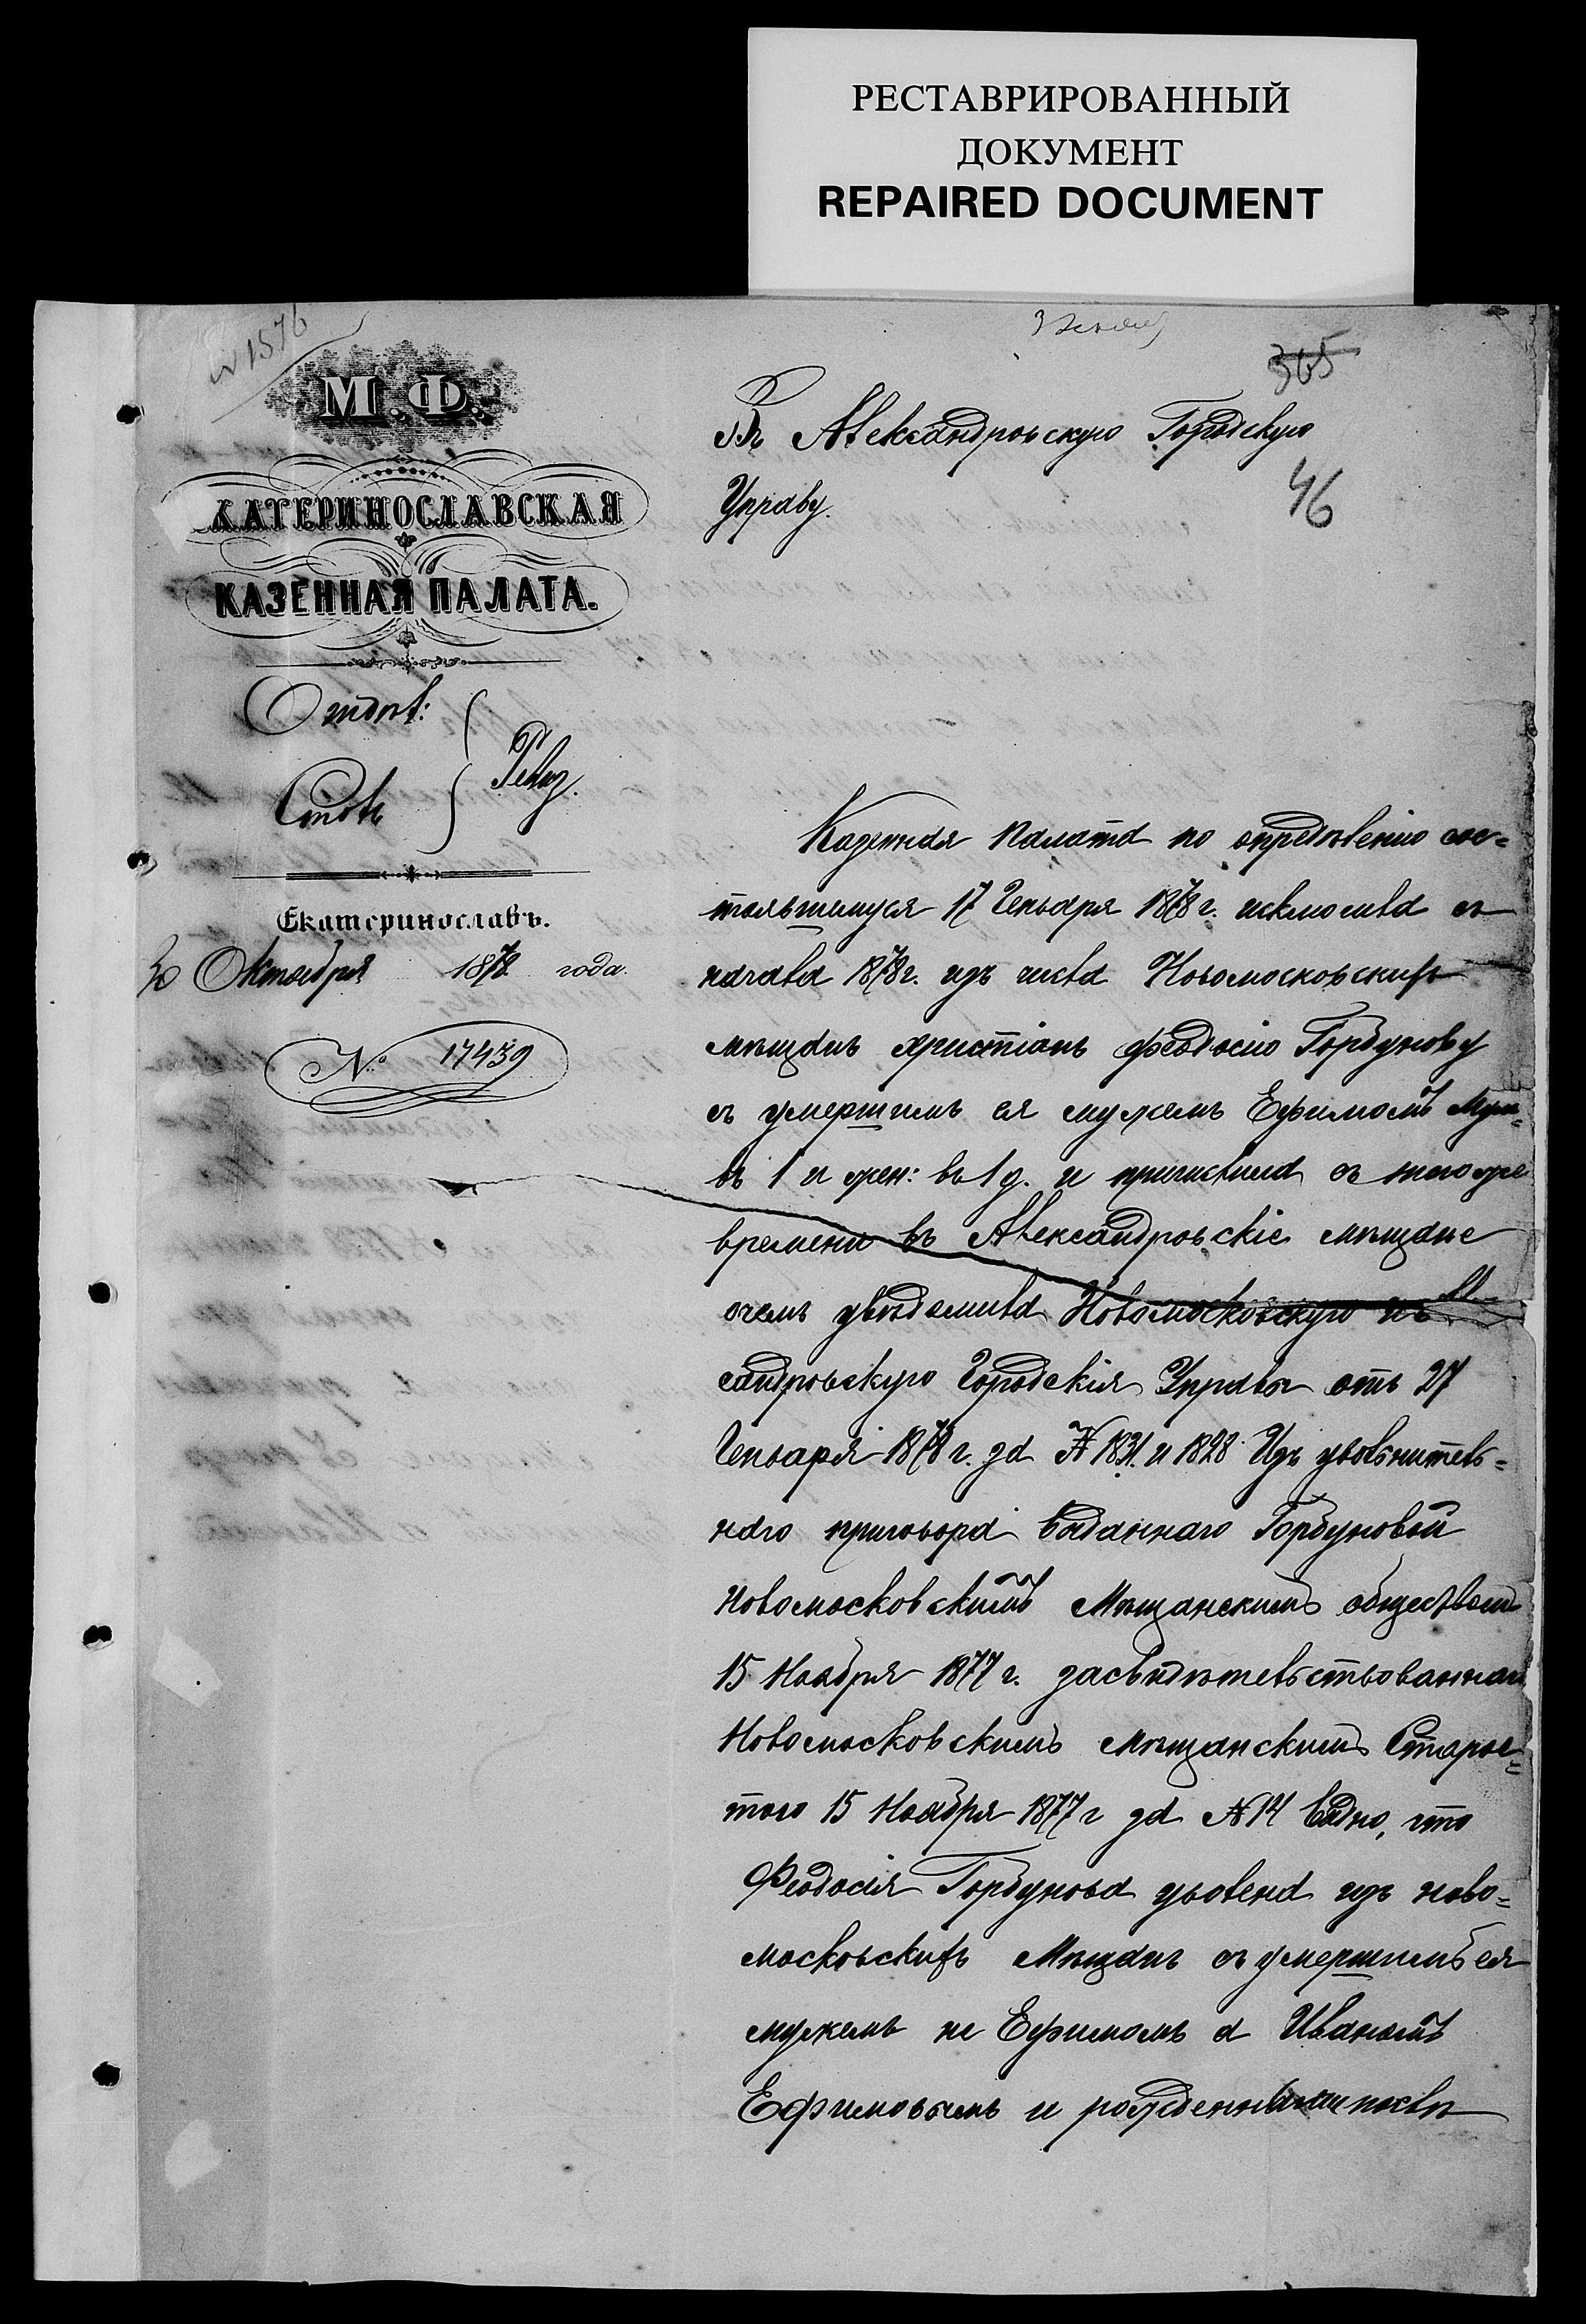 РЕСТАВРИРОВАННЫЙ
ДОКУМЕНТ
REPAIRED DOCUMENT
N 1576
365
46
М.Ф.
КАТЕРИНОСЛАВСКАЯ
КАЗЕННАЯ ПАЛАТА.
Отдѣл:
Столъ
Ревиз.
Екатеринославъ.
30 Октября 1878 года.
№ 17439
Въ Александровскую Городскую
Управу.
Казенная Палата по опредѣленію сос=
тоявшемуся 17 Генваря 1878 г. исключила съ
начала 1878 г. изъ числа Новомосковскихъ
мѣщанъ христіанъ Феодосію Горбунову
съ умершимъ ея мужемъ Ефимомъ муж:
въ 1 и жен: въ 1 д. и причислила съ того же
времени въ Александровскіе мѣщане
о чемъ увѣдомила Новомосковскую и
сандровскую Городскія Управы отъ 27
Генваря 1878 г. за № 1831 и 1828. Изъ увольнитель=
наго приговора выданнаго Горбуновой
Новомосковскимъ Мѣщанскимъ обществомъ
15 Ноября 1877 г. засвидѣтельствованнаго
Новомосковскимъ мѣщанскимъ Старос=
тою 15 Ноября 1877 г за № 14 видно, что
Феодосія Горбунова уволена изъ ново=
московскихъ Мѣщанъ съ умершимъ ея
мужемъ не Ефимомъ а Иваномъ
Ефимовымъ и рожденными послѣ